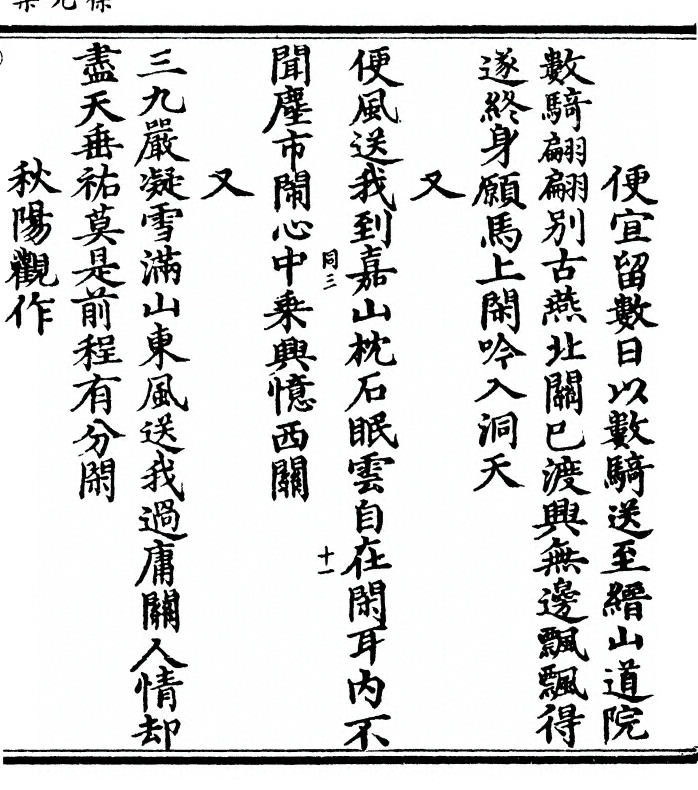 便宜留數日以數騎送至縉山道院
數騎翩翩別古燕北關已渡興無邊飄飄得
遂終身願馬上閑吟入洞天
又
便風送我到嘉山枕石眠雲自在閑耳内不
同三
十一
聞塵市鬧心中乗興憶西關
又
三九嚴凝雪滿山東風送我過庸關人情却
盡天垂祐莫是前程有分閑
秋陽觀作